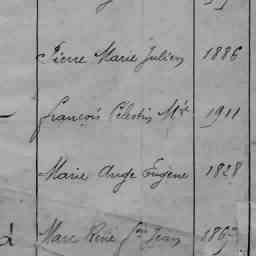 Pierre Marie Julien 1886
François Célestin Mie 1911
Marie Ange Eugène 1828
à Marc René Jean